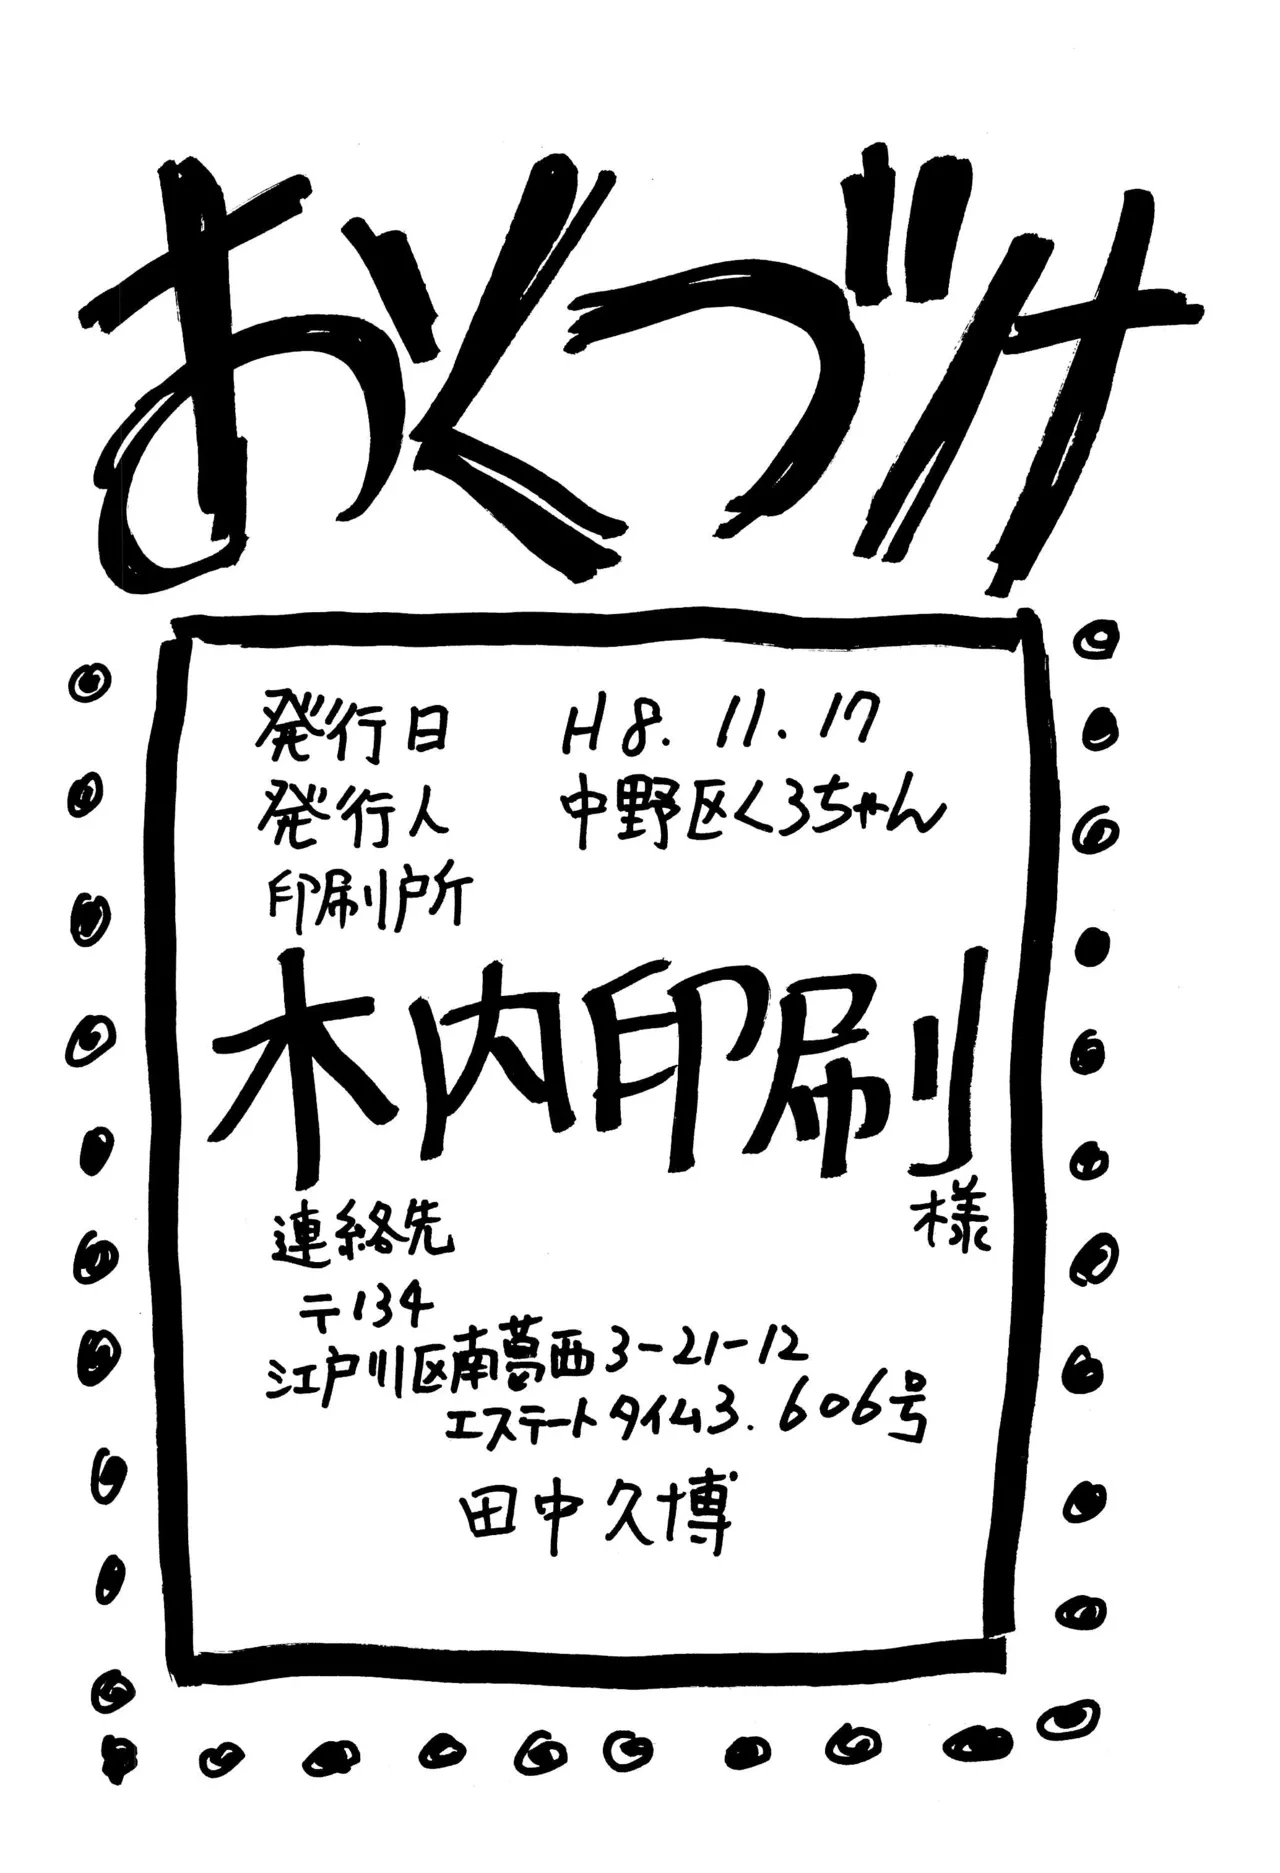 おくづけ
発行日 H8.11.17
発行人 中野区くろちゃん
印刷所
木内印刷
様
連絡先
〒134
江戸川区南葛西3-21-12
エステートタイム3. 606号
田中久博